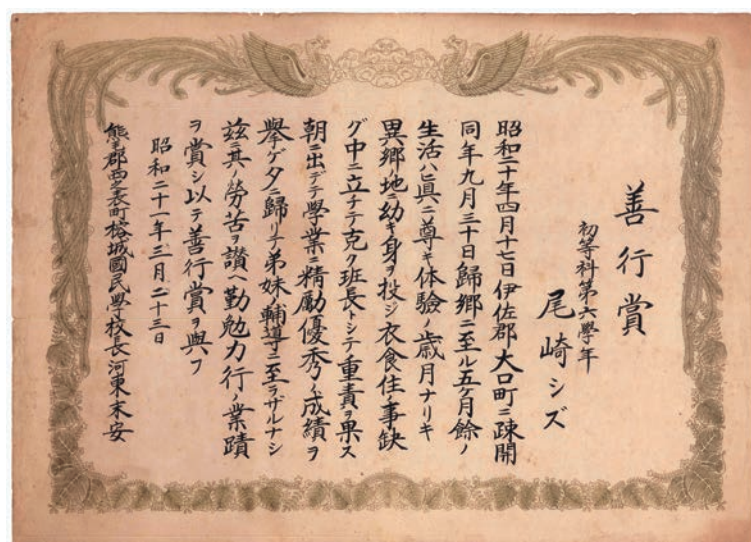 善行賞
初等科第六學年
尾崎シズ
昭和二十年四月十七日伊佐郡大口町ニ疎開
同年九月三十日歸郷ニ至ル五ケ月餘ノ
生活ハ眞ニ尊キ体驗ノ歳月ナリキ
異郷ノ地ニ幼キ身ヲ投ジ衣食住ノ事缺
グ中ニ立チテ克ク班長トシテ重責ヲ果ス
朝ニ出デテ學業ニ精勵優秀ノ成績ヲ
擧ゲタニ歸リテ弟妹ノ輔導ニ至ラザルナシ
玆ニ其ノ勞苦ヲ讃ヘ勤勉力行ノ業蹟
ヲ賞シ以テ善行賞ヲ與フ
昭和二十一年三月二十三日
熊毛郡西之表町榕城國民學校長河東末安